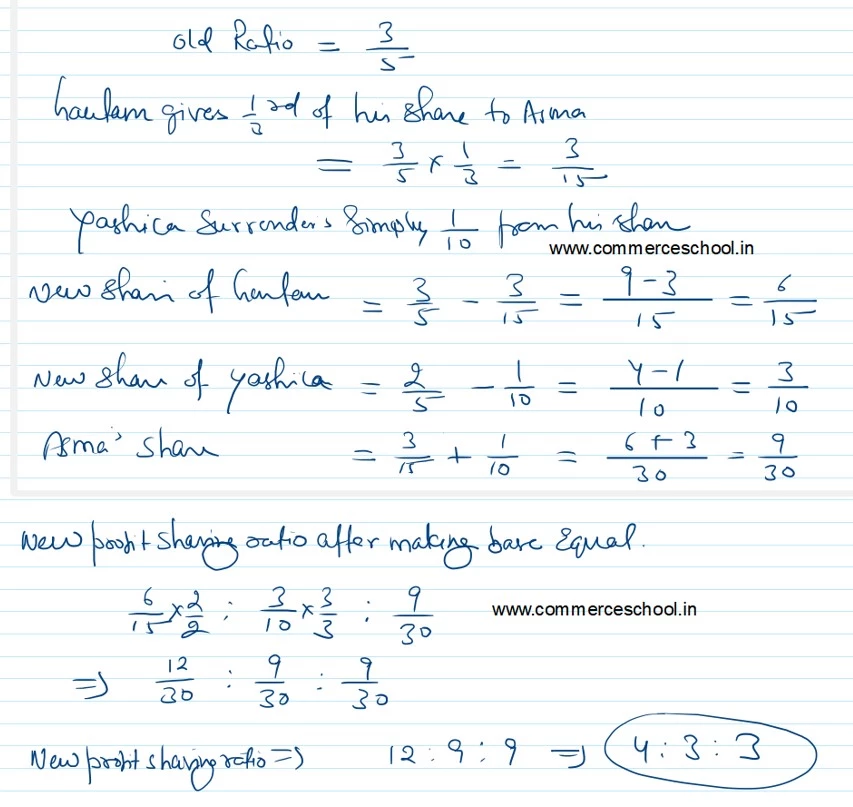 Old Ratio = 3/5
Gautam gives 1/3 rd of his share to Asma
= 3/5 × 1/3 = 3/15
Yashica Surrenders Simply 1/10 from his share
www.commerceschool.in
New Share of Gautam = 3/5 - 3/15 = 9-3/15 = 6/15
New Share of Yashica = 2/5 - 1/10 = 4-1/10 = 3/10
Asma's Share = 3/15 + 1/10 = 6+3/30 = 9/30
New profit sharing ratio after making base Equal.
6/15 × 2/2 : 3/10 × 3/3 : 9/30
www.commerceschool.in
⇒ 12/30 : 9/30 : 9/30
New profit sharing ratio ⇒ 12 : 9 : 9 ⇒ 4 : 3 : 3